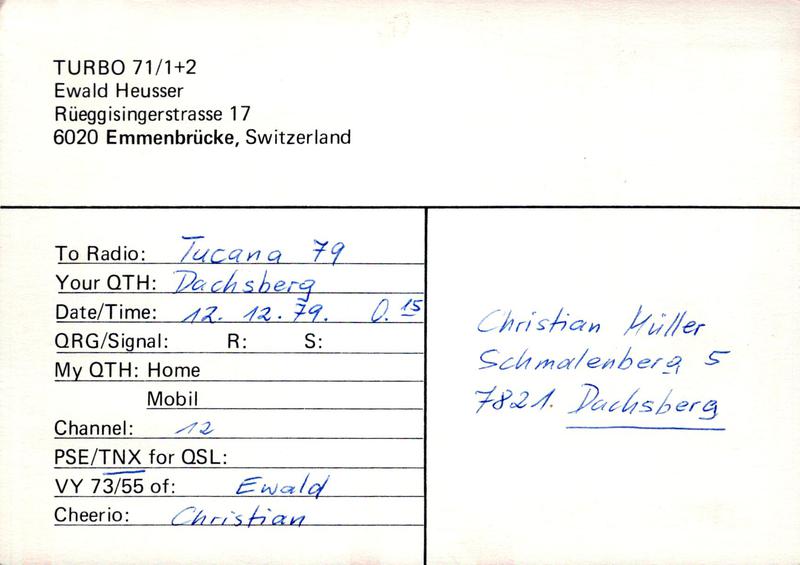 TURBO 71/1+2
Ewald Heusser
Rüeggisingerstrasse 17
6020 Emmenbrücke, Switzerland
To Radio: Tucana 79
Your QTH: Dachsberg
Date/Time: 12. 12. 79. 0.15
QRG/Signal: R: S:
My QTH: Home
Mobil
Channel: 12
PSE/TNX for QSL:
VY 73/55 of: Ewald
Cheerio: Christian
Christian Müller
Schmalenberg 5
7821. Dachsberg